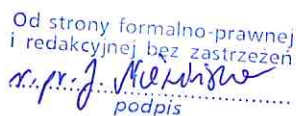 Od strony formalno-prawnej
i redakcyjnej bez zastrzeżeń
r.pr. J.
podpis